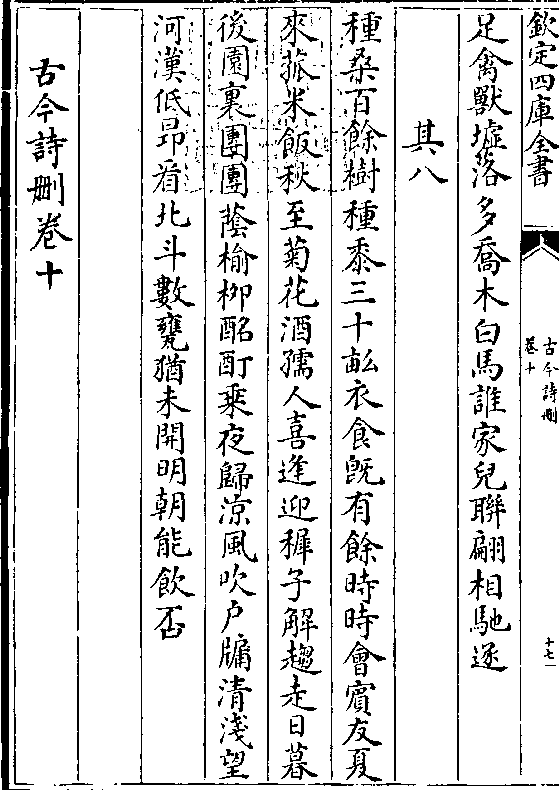 欽定四庫全書
古今詩刪
卷十
十七
足禽獸墟落多喬木白馬誰家兒聯翩相馳逐
其八
種桑百餘樹種黍三十畝衣食既有餘時時會賓友夏
來菰米飯秋至菊花酒孺人喜逢迎稚子解趨走日暮
後園裏團團蔭榆柳酩酊乗夜歸涼風吹户牖清淺望
河漢低昂看北斗數甕猶未開明朝能飲否
古今詩刪卷十